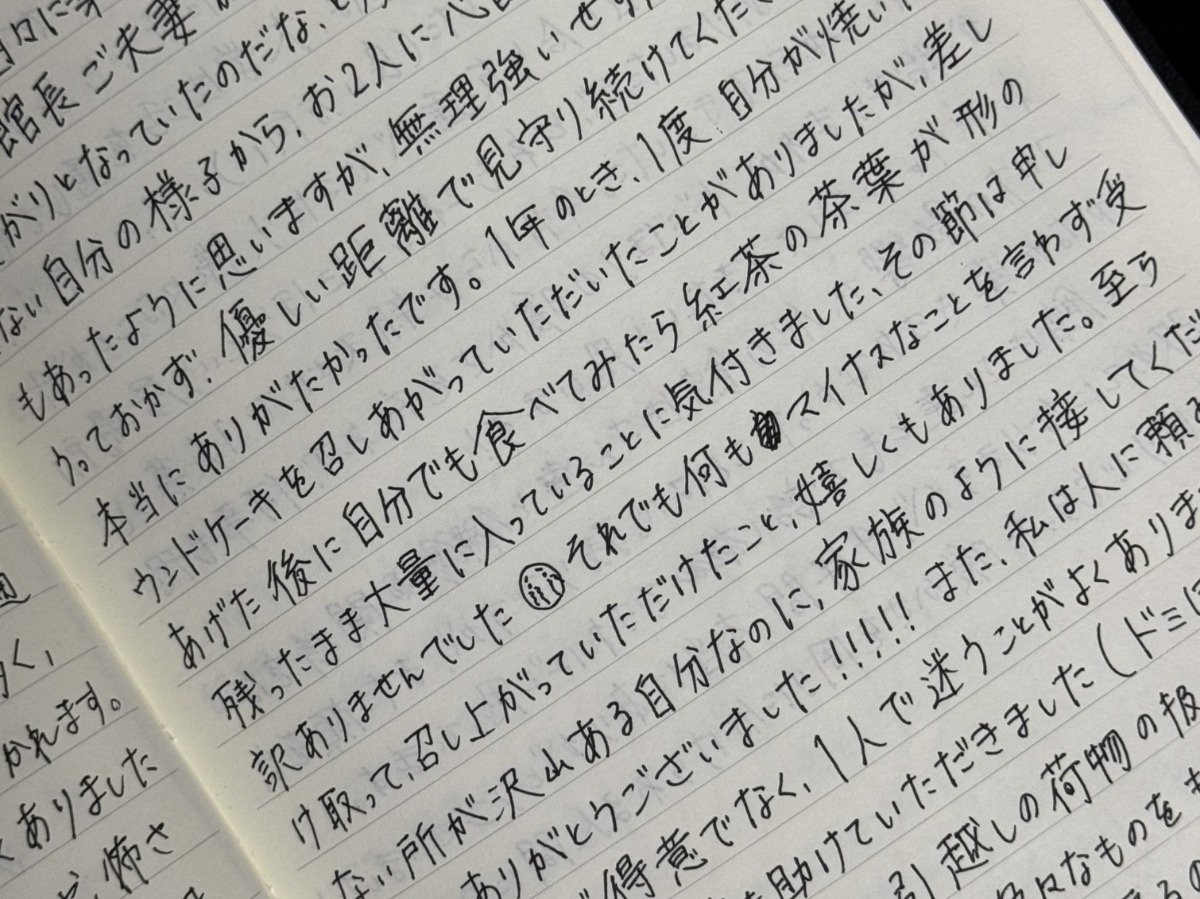 く、
かれます。
くありました
怖さ
館長ご夫妻
がりとなっていたのだな、と
ない自分の様子から、お2人に心
もあったように思いますが、無理強いせず
っておかず、優しい距離で見守り続けてくだ
本当にありがたかったです。1年のとき、1度、自分が焼い
ウンドケーキを召しあがっていただいたことがありましたが、差し
あげた後に自分でも食べてみたら紅茶の茶葉が形の
残ったまま大量に入っていることに気付きました、その節は申し
訳ありませんでした それでも何もマイナスなことを言わず受
け取って、召し上がっていただけたこと、嬉しくもありました。至ら
ない所が沢山ある自分なのに、家族のように接してくだ
ありがとうございました!!!!! また、私は人に頼
得意でなく、1人で迷うことがよくありま
を助けていただきました(ドミ
引越しの荷物の扱
々なものをも